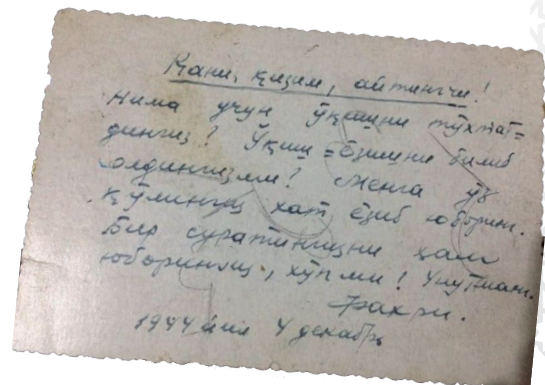 Қани, қизим, айтингчи!
Нима учун ўқишни тўхтат=
дингиз? Ўқиш=ёзишни билиб
олдингизми? Менга ўз
қўлингиз хат ёзиб юборинг.
Бир суратингизни ҳам
юборинг, хўпми! Унутманг.
Фахри.
1944 йил 4 декабрь